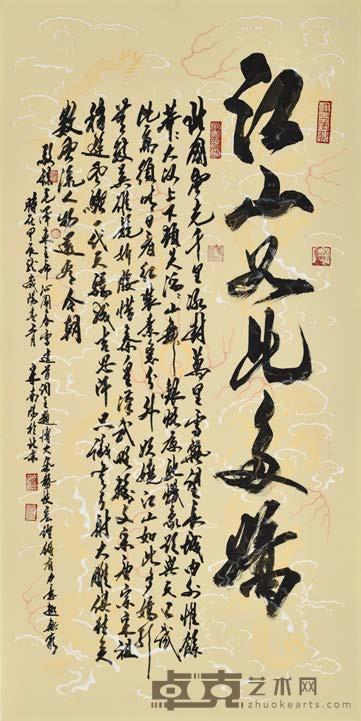 江山如此多娇
北国风光千里冰封万里雪飘望长城内外惟余
莽莽大河上下顿失滔滔山舞银蛇原驰蜡象欲与天公试
比高须晴日看红装素裹分外妖娆江山如此多娇引
无数英雄竞折腰惜秦皇汉武略输文采唐宗宋祖
稍逊风骚一代天骄成吉思汗只识弯弓射大雕俱往矣
数风流人物还看今朝
卓克艺术网
www.zhuokearts.com